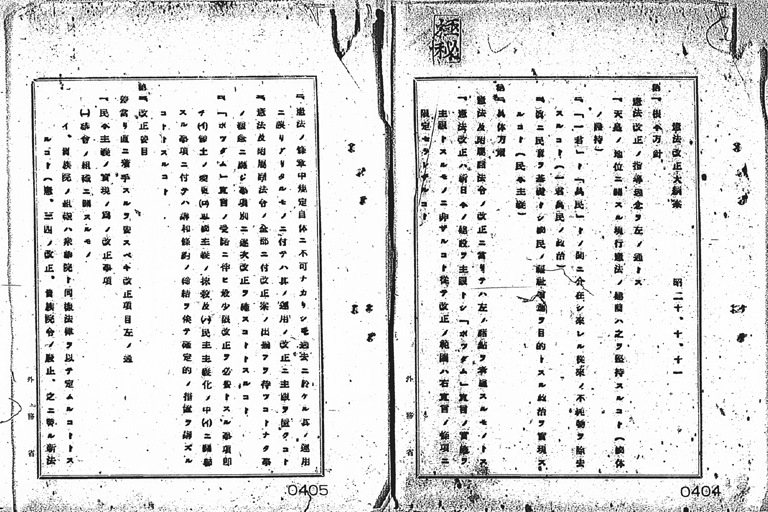 極秘
憲法改正大綱案
昭二十、十、十一
第一、根本方針
憲法改正ノ指導理念ヲ左ノ通トス
一、天皇ノ地位ニ関スル現行憲法ノ建前ハ之ヲ堅持スルコト(國体
ノ護持)
一、「一君」ト「萬民」トノ間ニ介在シ来レル従来ノ不純物ヲ除去
スルコト(一君萬民ノ政治)
一、真ニ民意ヲ基礎トシ國民ノ福祉増進ヲ目的トスル政治ヲ実現ス
ルコト(民本主義)
第二、具体方策
憲法及附属諸法令ノ改正ニ当リテハ左ノ諸点ヲ考慮スルモノトス
一、憲法改正ハ新日本ノ建設ヲ主眼トシ「ポツダム」宣言ノ実施ヲ
主眼トスルモノニ非ザルコト従テ改正ノ範囲ハ右宣言ノ條項ニ
限定セラレザルコト
外務省
0404
一、憲法ノ條章中規定自体ニ不可ナカリシモ過去ニ於ケル其ノ運用
ニ誤リアリタルモノニ付テハ其ノ運用ノ改正ニ主眼ヲ置クコト
一、憲法及附属諸法令ノ全部ニ付改正案ノ出揃フヲ待ツコトナク事
ノ緩急ニ応ジ事項別ニ逐次改正ヲ施スコトトスルコト
一、「ポツダム」宣言ノ受諾ニ伴ヒ最少限改正ヲ必要トスル事項即
チ(イ)領土ノ変更(ロ)軍國主義ノ抹殺及(ハ)民主主義化ノ中(イ)ニ関聯
スル事項ニ付テハ講和條約ノ締結ヲ俟テ確定的ノ措置ヲ講ズル
コトトスルコト
第三、改正要目
差当リ直ニ着手スルヲ要スベキ改正項目左ノ通
一、民本主義ノ実現ノ為ノ改正事項
(一)議会ノ組織ニ関スルモノ
イ、貴族院ノ組織ハ衆議院ト同様法律ヲ以テ定ムルコトトス
ルコト(憲、三四ノ改正。貴族院令ノ廃止。之ニ替ル新法
外務省
0405